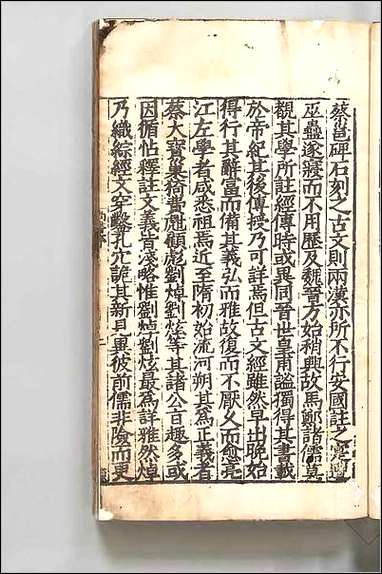 蔡邕碑石刻之古文則兩漢亦所不行安國註之寔遭
巫蠱遂寢而不用歷及魏晉方始稍興故馬鄭諸儒莫
覩其學所註經傳時或異同晉世皇甫謐獨得其書載
於帝紀其後傳授乃可詳焉但古文經雖然早出晚始
得行其辭富而備其義弘而雅故復而不厭久而愈亮
江左學者咸悉祖焉近至隋初始流河朔其爲正義者
蔡大寶巢猗費甝顧彪劉焯劉炫等其諸公旨趣多或
因循帖釋註文義皆淺略惟劉焯劉炫最爲詳雅然焯
乃織綜經文穿鑿孔穴詭其新見異彼前儒非險而更